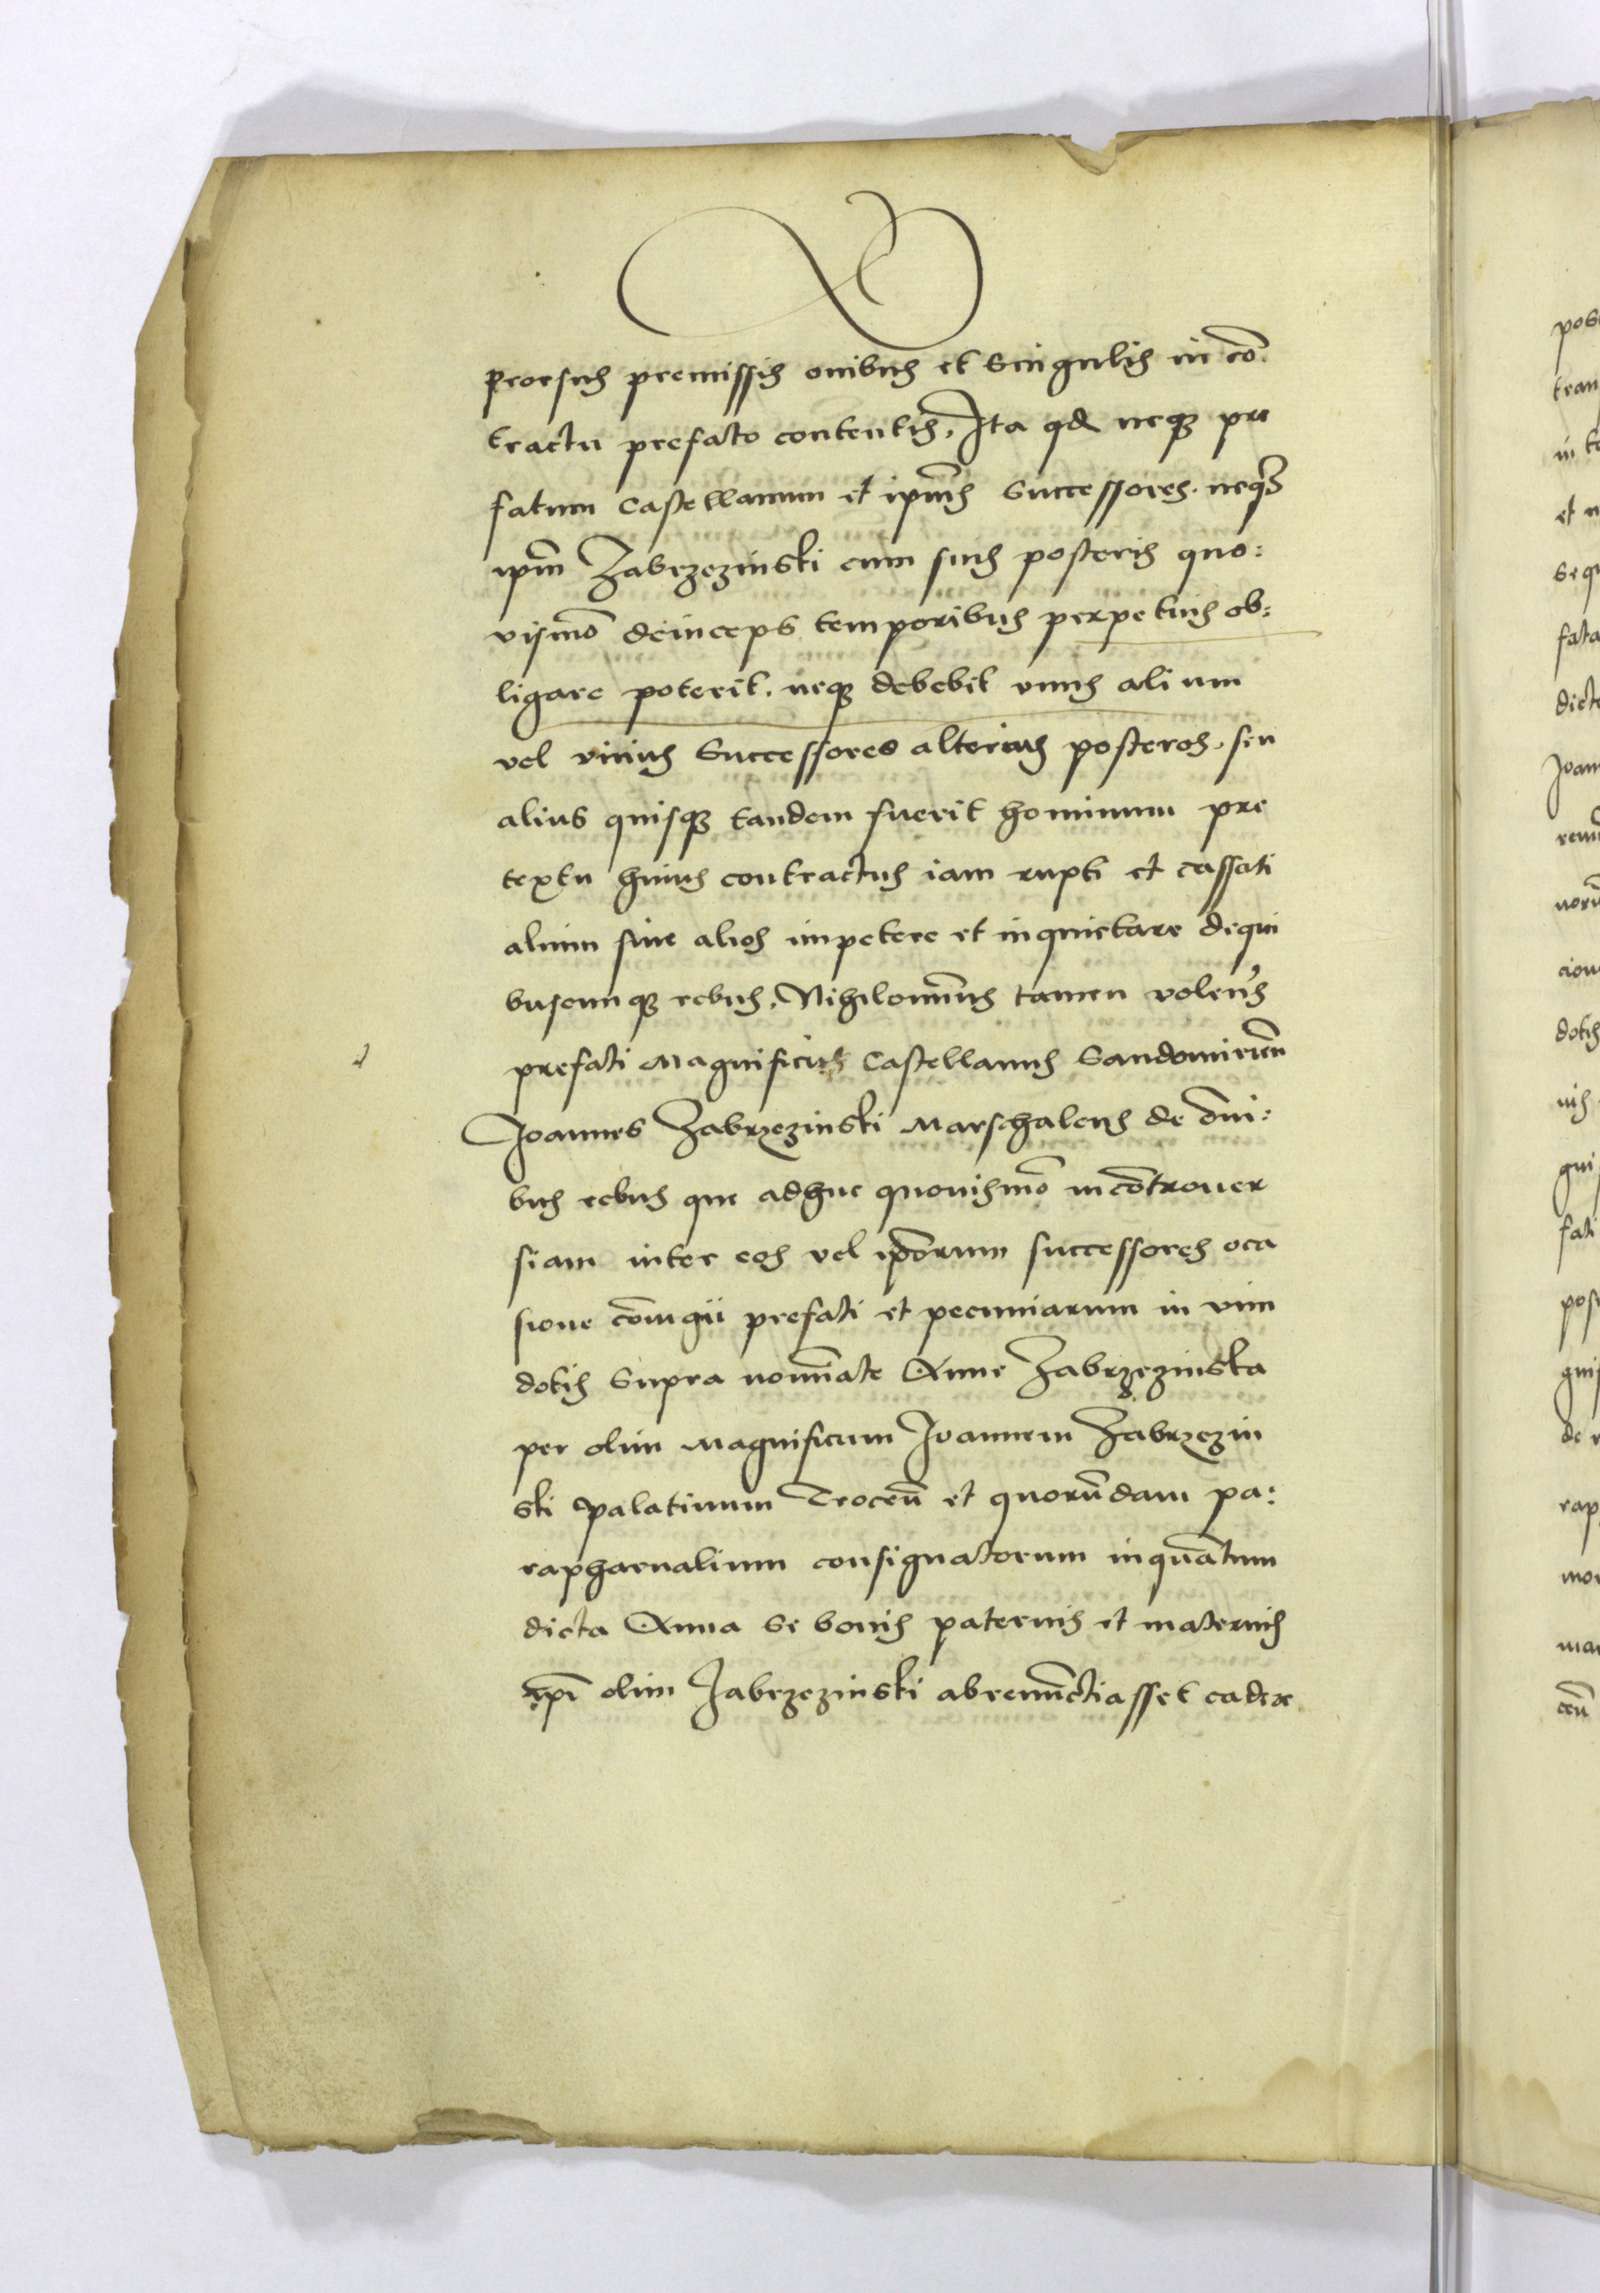 prorsus premissis omibus et singulis in co͞
tractu prefato contentis, Ita qd neq pre
fatum Castellanum et ipius Successores. neq
ipm͞ Zabrzezinski cum suis posteris quo:
vismo͞ deinceps temporibus perpetuis ob:
ligare poterit. neq debebit vnus alium
vel vnius Successores alterius posteros, seu
alius quisq tandem fuerit hominum pre
textu huius contractus iam rupti et cassati
alium siue alios impetere et inquietare dequi
buscunq rebus, Nihilomin͞us tamen volentes
prefati Magnificus Castellanus Sandomirien͞
Joannes Zabrzezinski Marschaleus de om͞i:
bus rebus que adhuc quouismo͞ in co͞trouer
siam inter eos vel ip͞orum successores oca
sione co͞iugii prefati et pecuniarum in vim
dotis supra nomi͞ate Anne Zabrzezinska
per olim Magnificum Joannem Zabrzezin
ski palatinum Trocen͞ et quoru͞dam pa:
raphernalium consignatorum inqua͞tum
dicta Anna se bonis paternis et maternis
ipi͞ olim Zabrzezinski abrenu͞ctiasset cadere